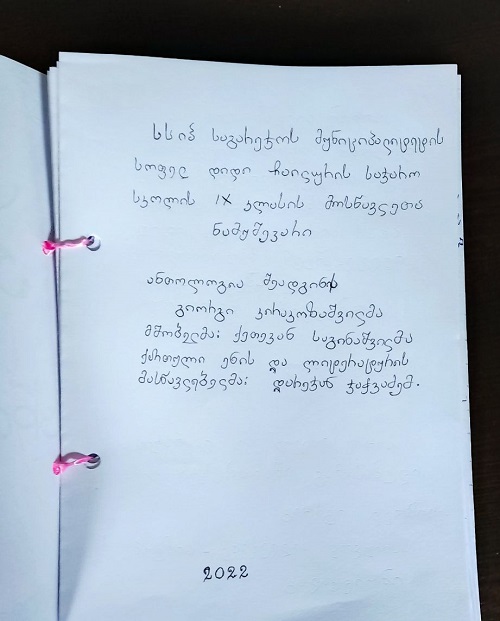 სსიპ საგარეჯოს მუნიციპალიტეტის
სოფელ დიდი ჩაილურის საჯარო
სკოლის IX კლასის მოსწავლეთა
ნამუშევარი
ანთოლოგია შეადგინა
გიორგი კირაკოზაშვილმა
მშობელმა: ქეთევან საგინაშვილმა
ქართული ენის და ლიტერატურის
მასწავლებელმა: დარეჯან ჯაჭვაძემ.
2022